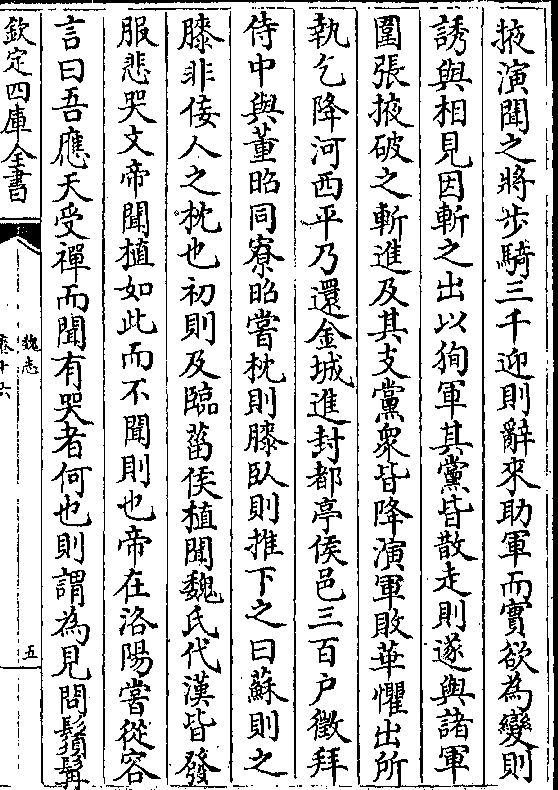 掖演聞之將步騎三千迎則辭來助軍而實欲為變則
誘與相見因斬之出以狥軍其黨皆散走則遂與諸軍
圍張掖破之斬進及其支黨衆皆降演軍敗華懼出所
執乞降河西平乃還金城進封都亭侯邑三百户徵拜
侍中與董昭同寮昭嘗枕則膝臥則推下之曰蘇則之
膝非佞人之枕也初則及臨菑侯植聞魏氏代漢皆發
服悲哭文帝聞植如此而不聞則也帝在洛陽嘗從容
言曰吾應天受禪而聞有哭者何也則謂為見問鬚髯
欽定四庫全書
魏志
卷十六
五